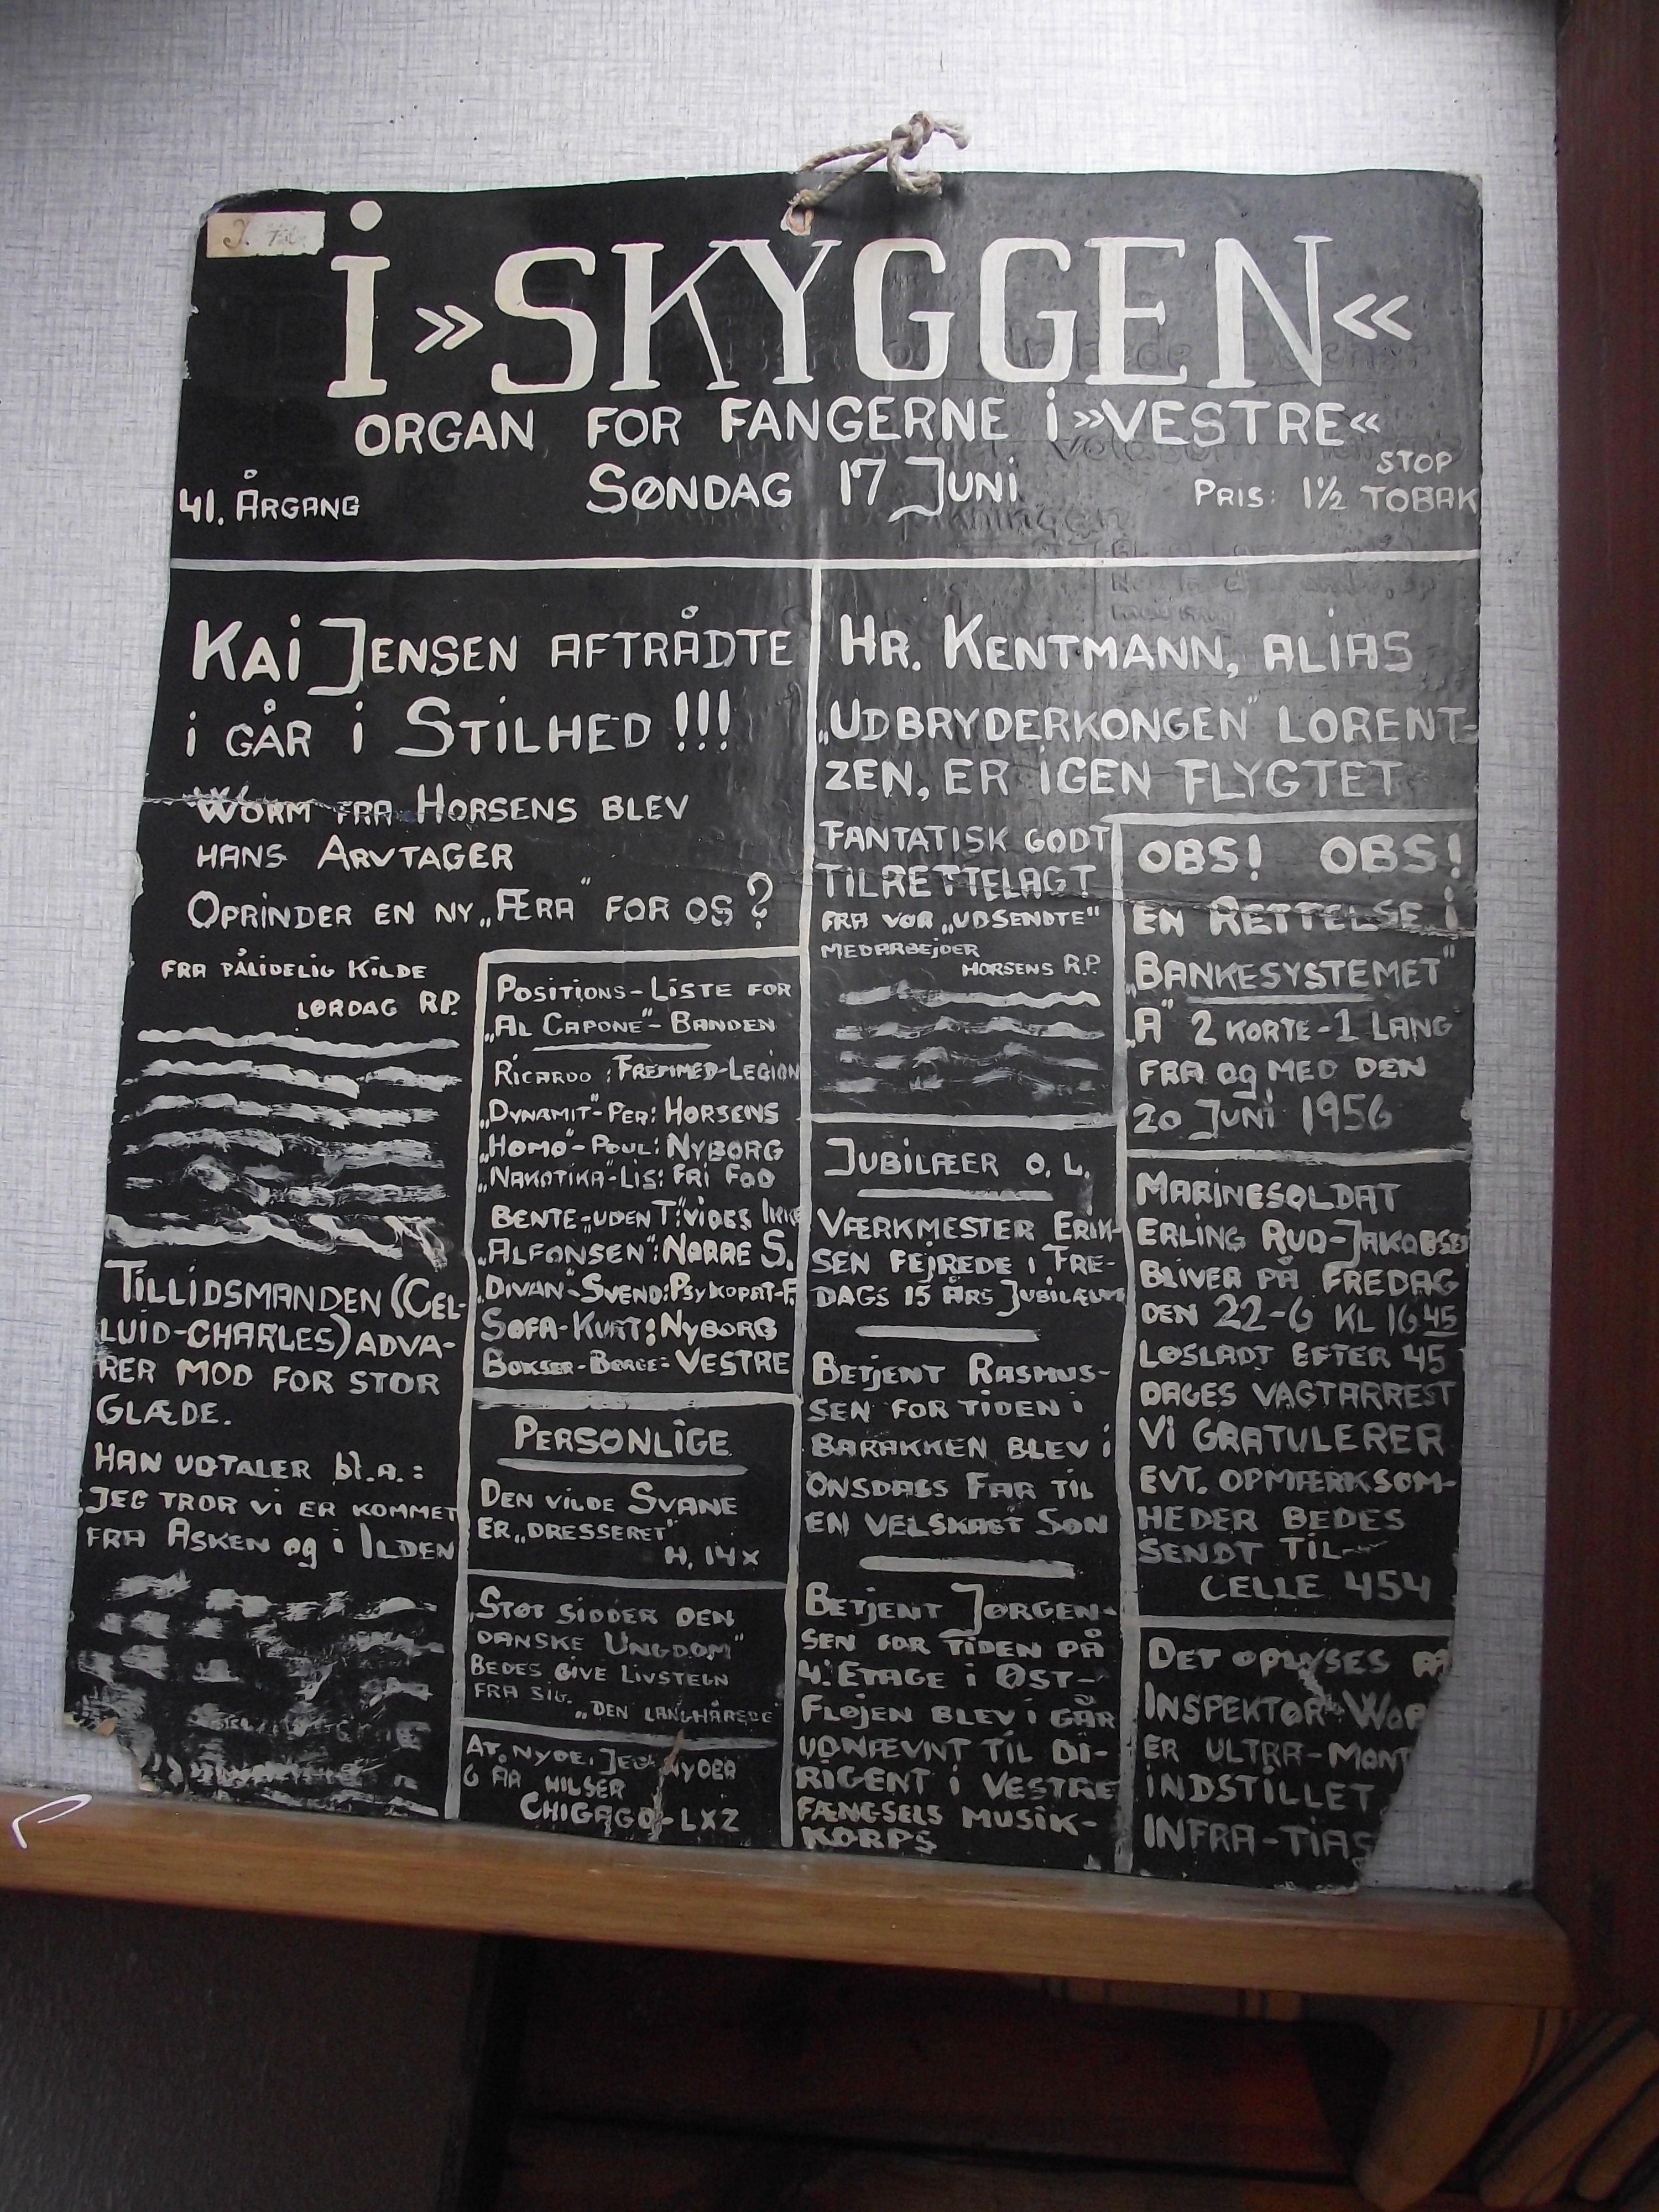 i »SKYGGEN«
ORGAN FOR FANGERNE i »VESTRE«
41. ÅRGANG
SØNDAG 17 JUNI
PRIS: 1½ STOP TOBAK
KAI JENSEN AFTRÅDTE
i GÅR i STILHED !!!
WORM FRA HORSENS BLEV
HANS ARVTAGER
OPRINDER EN NY „ÆRA" FOR OS?
FRA PÅLIDELIG KILDE
LØRDAG R.P.
TILLIDSMANDEN (CEL-
LUID-CHARLES) ADVA-
RER MOD FOR STOR
GLÆDE.
HAN UDTALER bl.A.:
JEG TROR VI ER KOMMET
FRA ASKEN og i ILDEN
POSITIONS-LISTE FOR
„AL CAPONE"-BANDEN
RICARDO: FREMMED-LEGION
„DYNAMIT"-PER: HORSENS
„HOMO"-POUL: NYBORG
„NAKOTIKA"-LIS: FRI FOD
BENTE-UDEN T: VIDES IKKE
„ALFONSEN": NØRRE S.
„DIVAN"-SVEND: PSYKOPAT-F.
SOFA-KURT: NYBORG
BOKSER-BØRGE: VESTRE
PERSONLIGE
DEN VILDE SVANE
ER „DRESSERET"
H. 14X
STOT SIDDER DEN
DANSKE UNGDOM"
BEDES GIVE LIVSTEGN
FRA SIG. „DEN LANGHÅREDE"
AT NYDE, JEG NYDER
6 ÅR HILSER
CHIGAGO-LXZ
HR. KENTMANN, ALIAS
„UDBRYDERKONGEN" LORENT-
ZEN, ER IGEN FLYGTET
FANTATISK GODT
TILRETTELAGT
FRA VOR „UDSENDTE"
MEDARBEJDER
HORSENS R.P.
JUBILÆER O.L.
VÆRKMESTER ERIK-
SEN FEJREDE I FRE-
DAGS 15 ÅRS JUBILÆUM
BETJENT RASMUS-
SEN FOR TIDEN i
BARAKKEN BLEV i
ONSDAGS FAR TIL
EN VELSKABT SØN
BETJENT JØRGEN-
SEN FOR TIDEN PÅ
4. ETAGE i ØST-
FLØJEN BLEV i GÅR
UDNÆVNT TIL DI-
RIGENT i VESTRE
FÆNGSELS MUSIK-
KORPS
OBS! OBS!
EN RETTELSE i
„BANKESYSTEMET"
„A" 2 KORTE-1 LANG
FRA og MED DEN
20 JUNI 1956
MARINESOLDAT
ERLING RUD-JAKOBSEN
BLIVER PÅ FREDAG
DEN 22-6 KL 1645
LØSLADT EFTER 45
DAGES VAGTARREST
VI GRATULERER
EVT. OPMÆRKSOM-
HEDER BEDES
SENDT TIL-
CELLE 454
DET OPLYSES AT
INSPEKTØR WOR
ER ULTRA-MONT
INDSTILLET
INFRA-TIAS